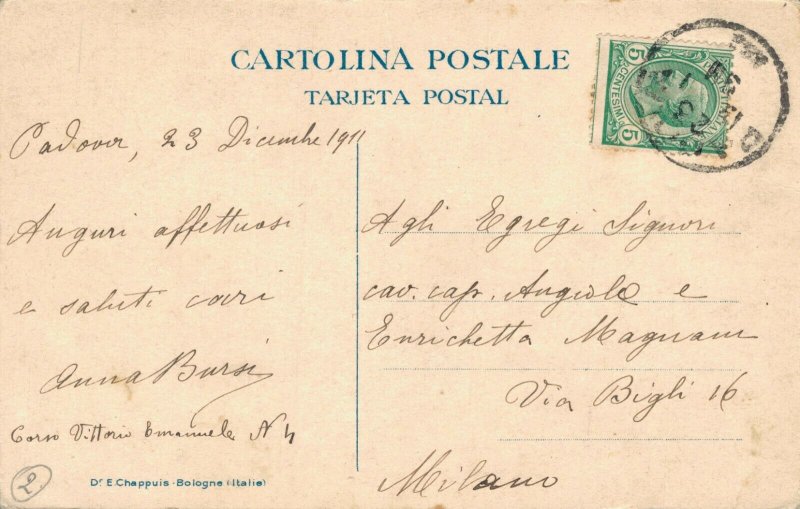 CARTOLINA POSTALE
TARJETA POSTAL
Padova, 23 Dicembre 1911
Auguri affettuosi
e saluti cari
Anna Bursi
Corso Vittorio Emanuele N 4
Dr. E. Chappuis - Bologne (Italie)
2
5 CENTESIMI 5
Agli Egregi Signori
cav. cap. Angiolo e
Enrichetta Magnani
Via Bigli 16
Milano